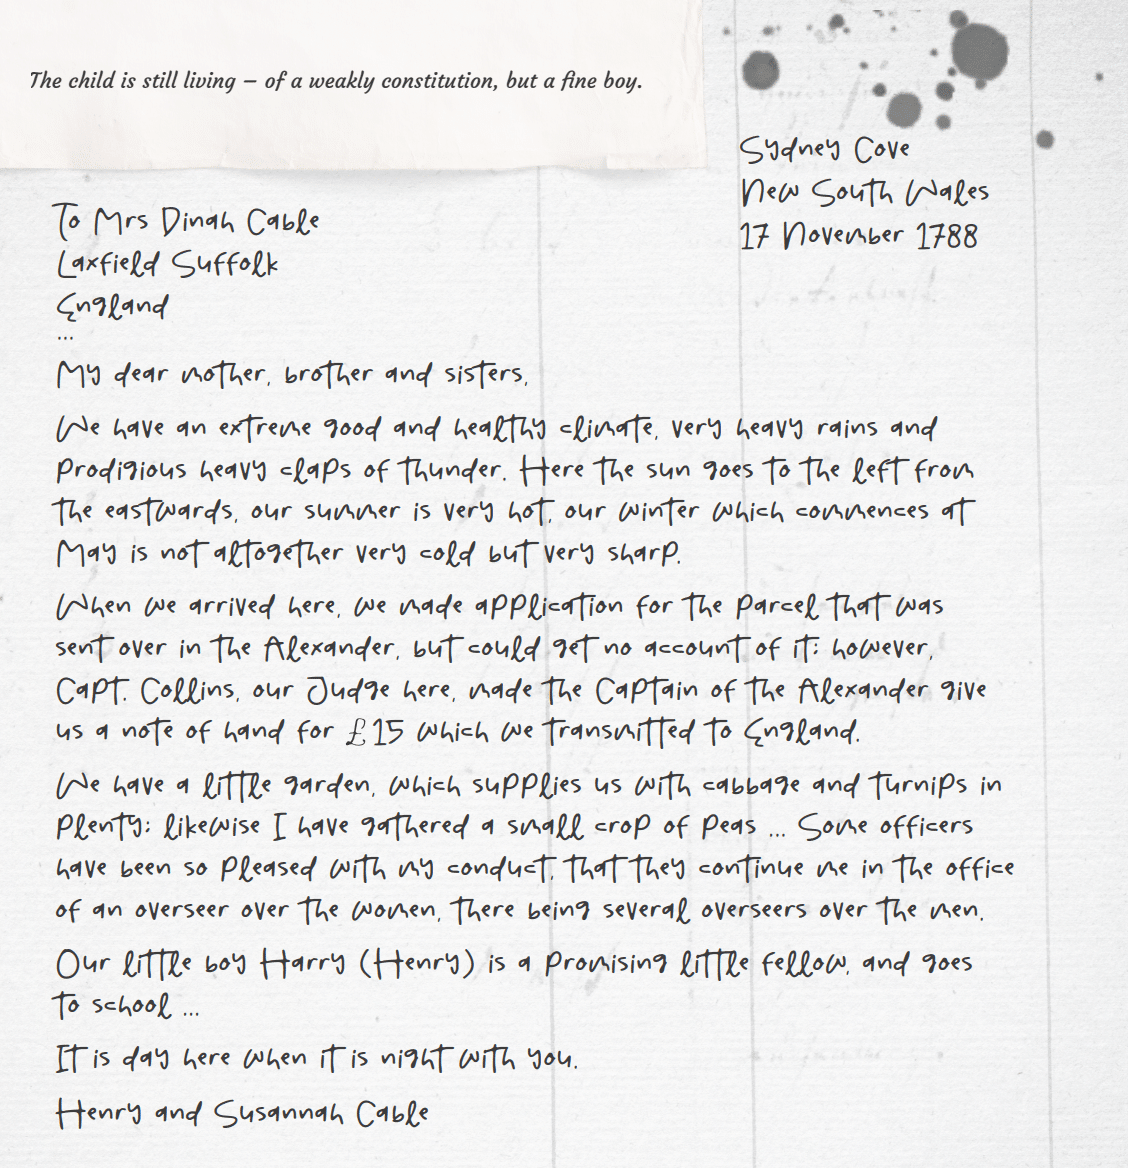 The child is still living – of a weakly constitution, but a fine boy.
Sydney Cove
New South Wales
17 November 1788
To Mrs Dinah Cable
Laxfield Suffolk
England
...
My dear mother, brother and sisters,
We have an extreme good and healthy climate, very heavy rains and
prodigious heavy claps of thunder. Here the sun goes to the left from
the eastwards, our summer is very hot, our winter which commences at
May is not altogether very cold but very sharp.
When we arrived here, we made application for the parcel that was
sent over in the Alexander, but could get no account of it; however,
Capt. Collins, our Judge here, made the Captain of the Alexander give
us a note of hand for £15 which we transmitted to England.
We have a little garden, which supplies us with cabbage and turnips in
plenty; likewise I have gathered a small crop of peas ... Some officers
have been so pleased with my conduct, that they continue me in the office
of an overseer over the women, there being several overseers over the men.
Our little boy Harry (Henry) is a promising little fellow, and goes
to school ...
It is day here when it is night with you.
Henry and Susannah Cable